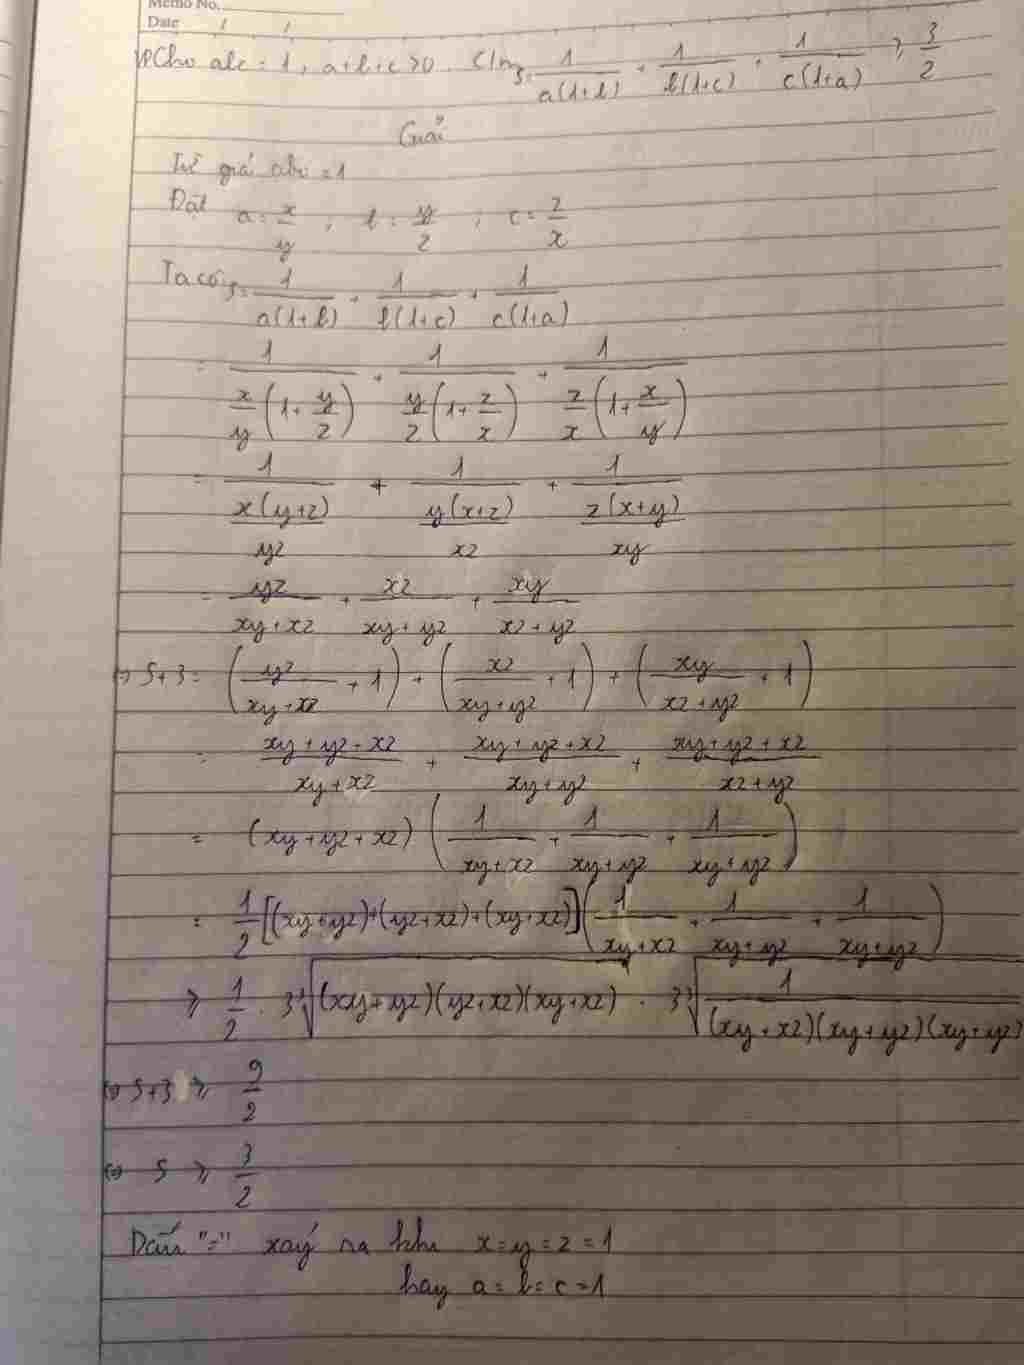 Memo No.
Date / /
Cho abc = 1, a+b+c >0. Cmg S= 1/(a(1+b)) + 1/(b(1+c)) + 1/(c(1+a)) ≥ 3/2
Giải
Từ giả abc = 1
Đặt a = x/y ; b = y/z ; c = z/x
Ta có S= 1/(a(1+b)) + 1/(b(1+c)) + 1/(c(1+a))
= 1/(x/y (1+ y/z)) + 1/(y/z (1+ z/x)) + 1/(z/x (1+ x/y))
= 1/(x(y+z)/yz) + 1/(y(x+z)/xz) + 1/(z(x+y)/xy)
= yz/(xy+xz) + xz/(xy+yz) + xy/(xz+yz)
⇔ S+3 = (yz/(xy+xz) + 1) + (xz/(xy+yz) + 1) + (xy/(xz+yz) + 1)
= (xy+yz+xz)/(xy+xz) + (xy+yz+xz)/(xy+yz) + (xy+yz+xz)/(xz+yz)
= (xy+yz+xz) (1/(xy+xz) + 1/(xy+yz) + 1/(xy+yz))
= 1/2 [(xy+yz)+(yz+xz)+(xy+xz)] (1/(xy+xz) + 1/(xy+yz) + 1/(xy+yz))
≥ 1/2 . 3∛((xy+yz)(yz+xz)(xy+xz)) . 3∛(1/((xy+xz)(xy+yz)(xy+yz)))
⇔ S+3 ≥ 9/2
⇔ S ≥ 3/2
Dấu "=" xảy ra khi x=y=z=1
hay a=b=c=1